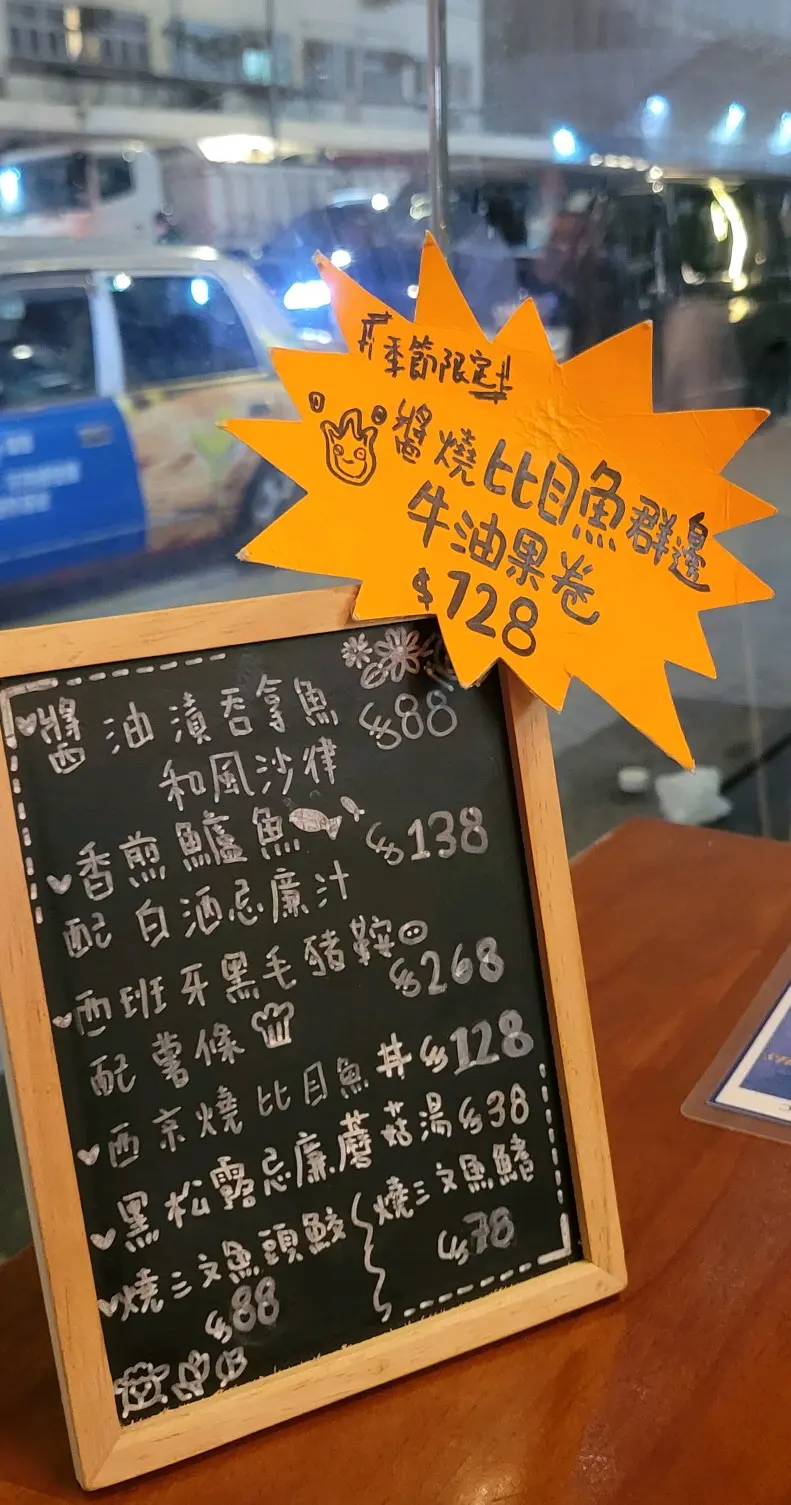 #季節限定#
醬燒比目魚群邊
牛油果卷
$128
醬油漬吞拿魚 $88
和風沙律
香煎鱸魚 $138
配白酒忌廉汁
西班牙黑毛豬鞍 $268
配薯條
西京燒比目魚丼 $128
黑松露忌廉蘑菇湯 $38
燒三文魚頭鮫 $88
燒三文魚鰭 $78